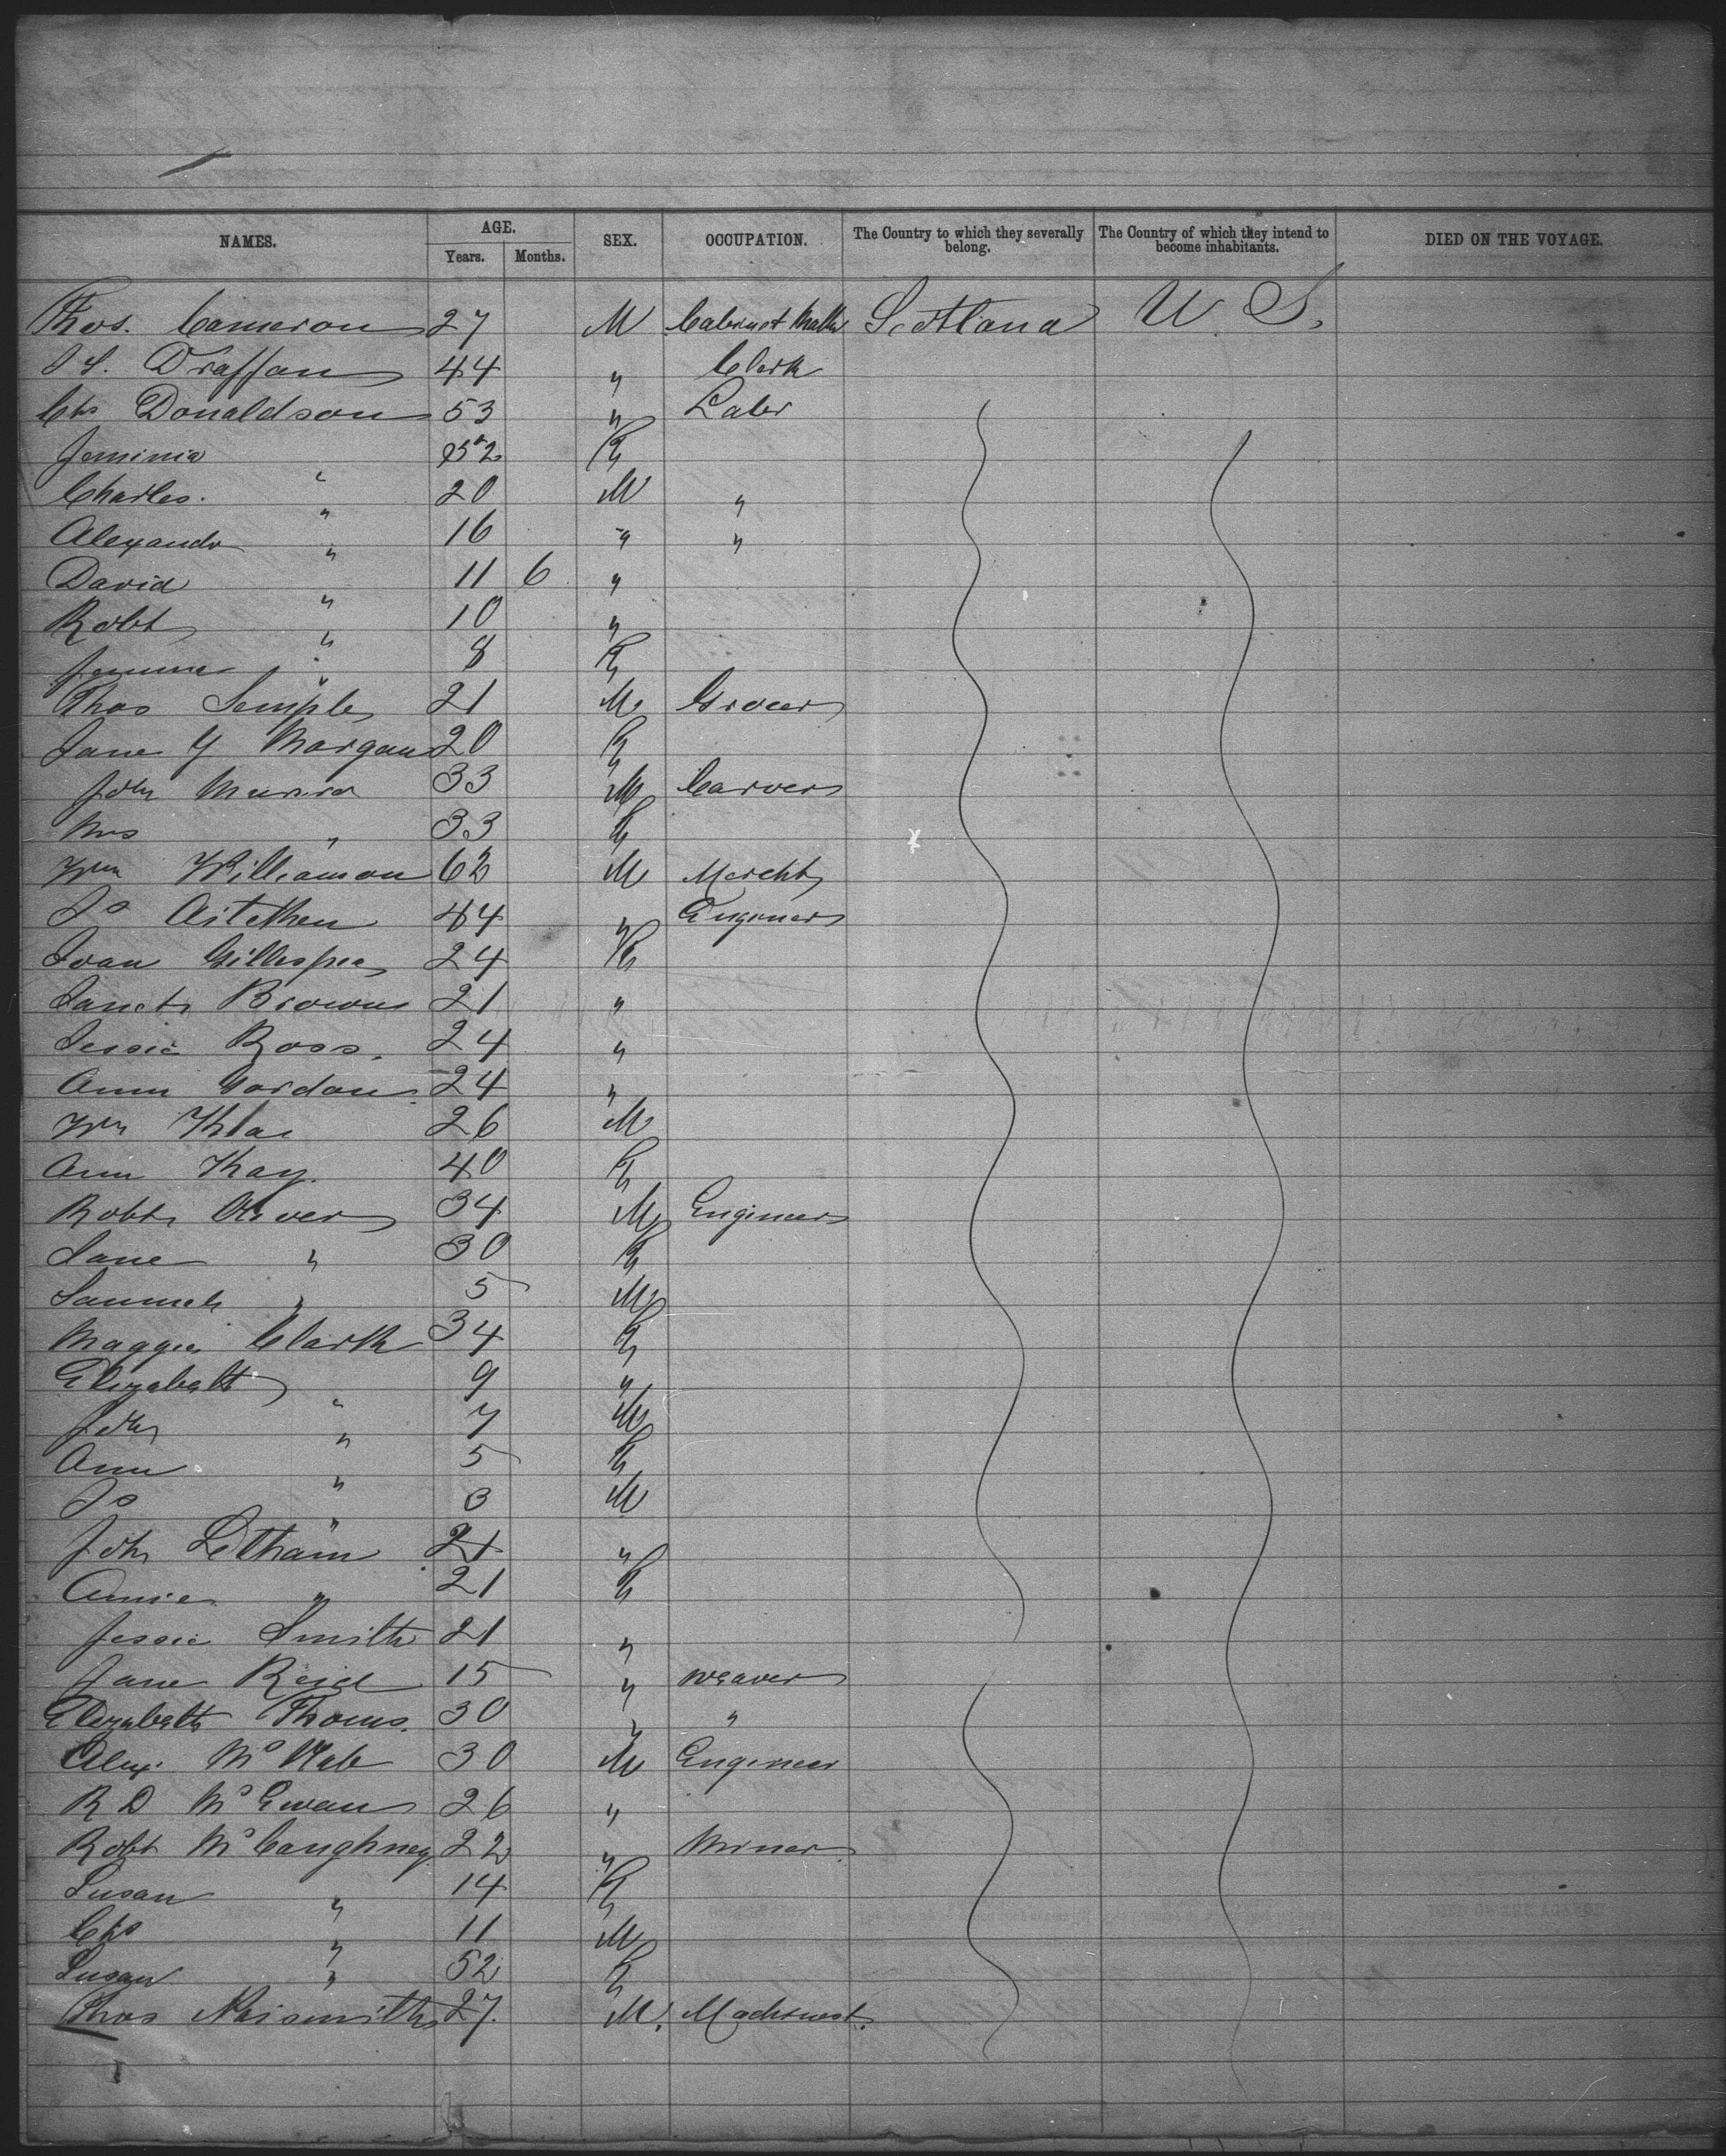 NAMES. AGE. SEX. OCCUPATION. The Country to which they severally belong. The Country of which they intend to become inhabitants. DIED ON THE VOYAGE.
Years. Months.
Thos. Cameron 27 M Cabinet Maker Scotland U. S.
Draffan 44 " Clerk
Chs Donaldson 53 " Labr
Jemima " 52 F
Charles. " 20 M "
Alexandr " 16 " "
David " 11 6 "
Robt " 10 "
Jemima " 8 F
Thos Semple 21 M Grocer
Jane Y Morgan 20 F
John Munro 33 M Carver
Mrs " 33 F
Wm Williamson 62 M Mercht
Js Aitethen 44 " Engineer
Joan Gillespie 24 F
Janet Brown 21 "
Jessie Ross. 24 "
Ann Gordon 24 "
Wm 26 M
Ann Kay. 40 F
Robt Oliver 34 M Engineer
Jane " 30 F
Samuel " 5 M
Maggie Clark 34 F
Elizabeth " 9 "
John " 7 M
Ann " 5 F
Js " 3 M
John Letham 21 "
Annie " 21 F
Jessie Smith 21 "
Jane Reid 15 " Weaver
Elizabeth Thoms. 30 " "
Alex. Mc Nab 30 M Engineer
R D McEwan 26 "
Robt McCaughney 22 " Miner
Susan " 14 F
Chs " 11 M
Susan " 52 F
Thos Naismith 27. M. Machinest.